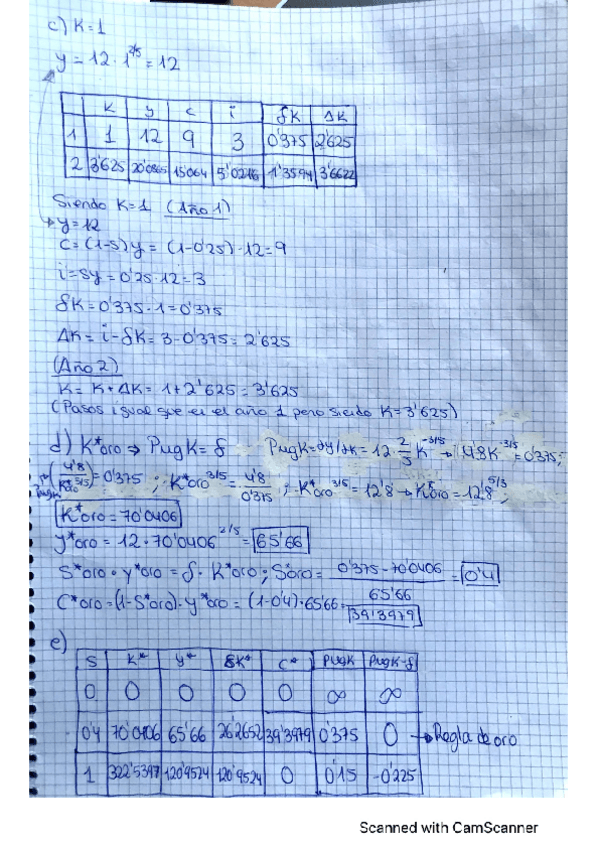 c) K=1
y = 12 · 1^2/5 = 12
K y c i δK ΔK
1 1 12 9 3 0'375 2'625
2 3'625 20'0865 15'064 5'0216 1'3594 3'6622
Siendo K=1 (Año 1)
y=12
C = (1-s)y = (1-0'25)·12=9
i=sy=0'25·12=3
δK=0'375·1=0'375
ΔK= i-δK= 3-0'375= 2'625
(Año 2)
K= K+ΔK= 1+2'625=3'625
(Pasos igual que en el año 1 pero siendo K=3'625)
d) K*oro ⇒ PMgK= δ PMgK=∂y/∂K=12·2/5 K^-3/5 → 4'8K^-3/5=0'375;
PMgK (4'8/K*oro^3/5)=0'375 ; K*oro^3/5= 4'8/0'375 ; K*oro^3/5=12'8 → K*oro=12'8^5/3 ;
K*oro=70'0406
y*oro= 12·70'0406^2/5=65'66
S*oro·y*oro=δ·K*oro; S*oro= 0'375·70'0406/65'66=0'4
C*oro=(1-S*oro)·y*oro= (1-0'4)·65'66=39'3979
e)
S K* y* δK* C* PMgK PMgK-δ
0 0 0 0 0 ∞ ∞
0'4 70'0406 65'66 26'2652 39'3979 0'375 0 → Regla de oro
1 322'5397 120'9524 120'9524 0 0'15 -0'225
Scanned with CamScanner